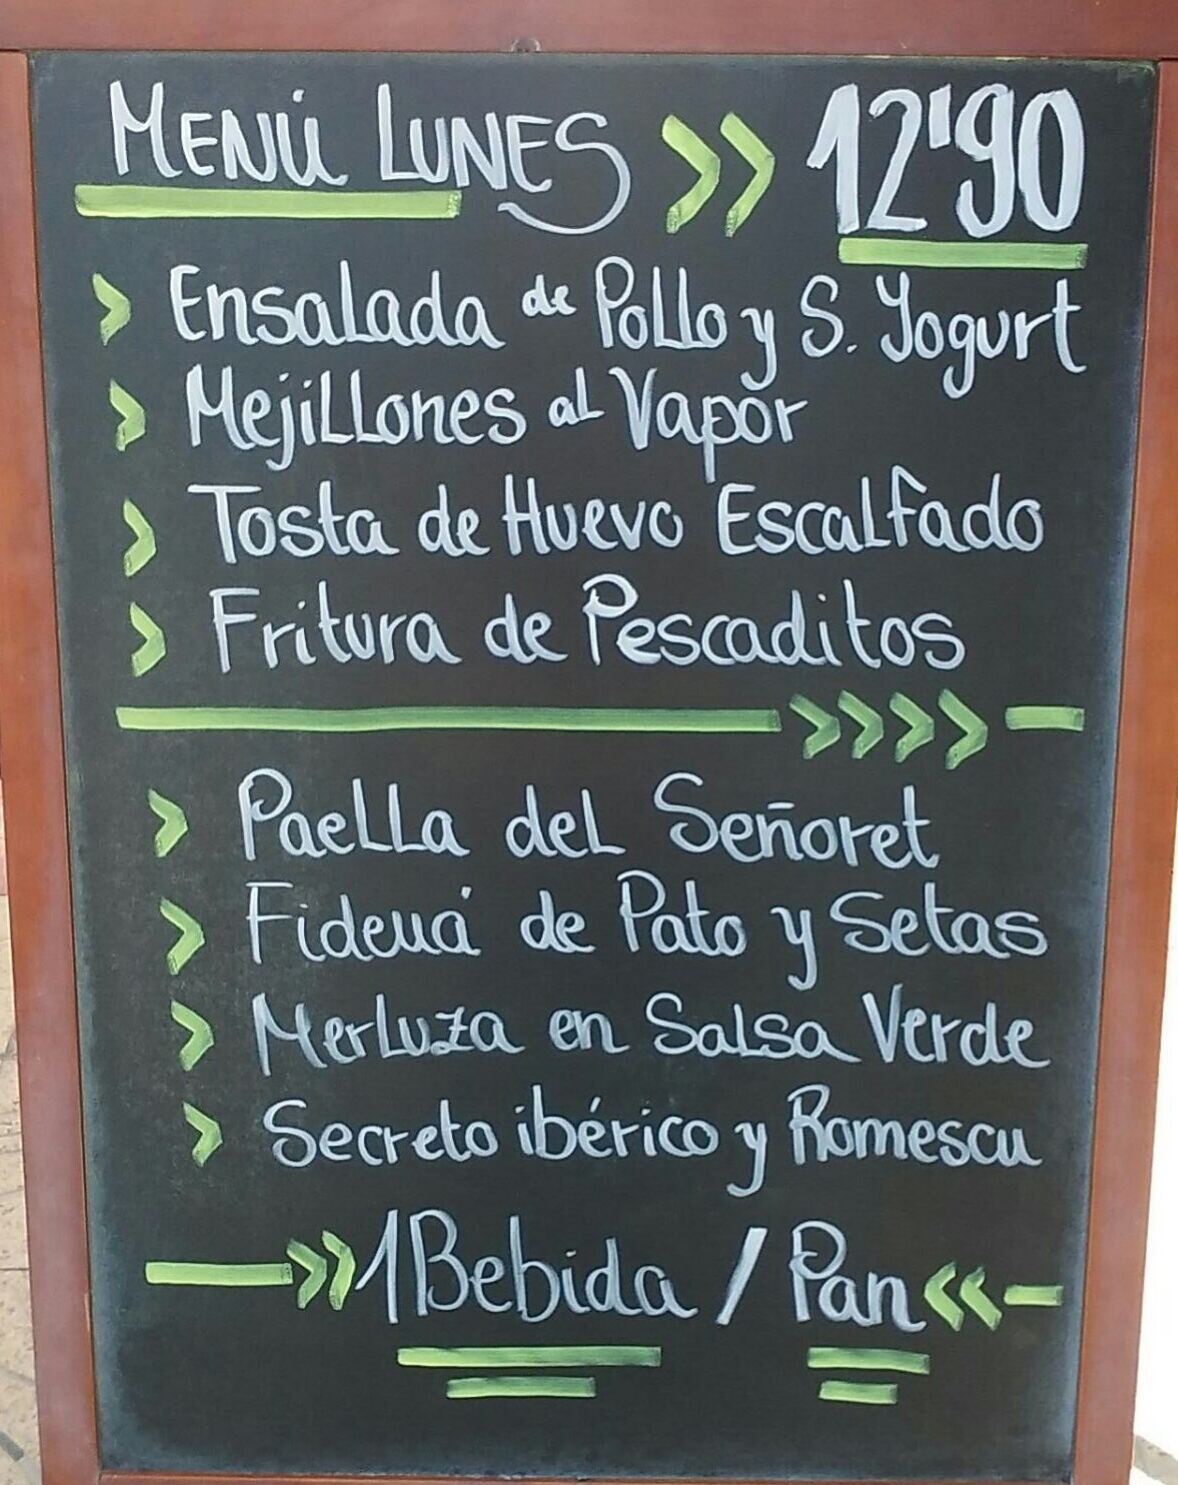 MENÚ LUNES >> 12'90
> Ensalada de Pollo y S. Yogurt
> Mejillones al Vapor
> Tosta de Huevo Escalfado
> Fritura de Pescaditos
> Paella del Señoret
> Fideuá de Pato y Setas
> Merluza en Salsa Verde
> Secreto ibérico y Romescu
>> 1 Bebida / Pan <<